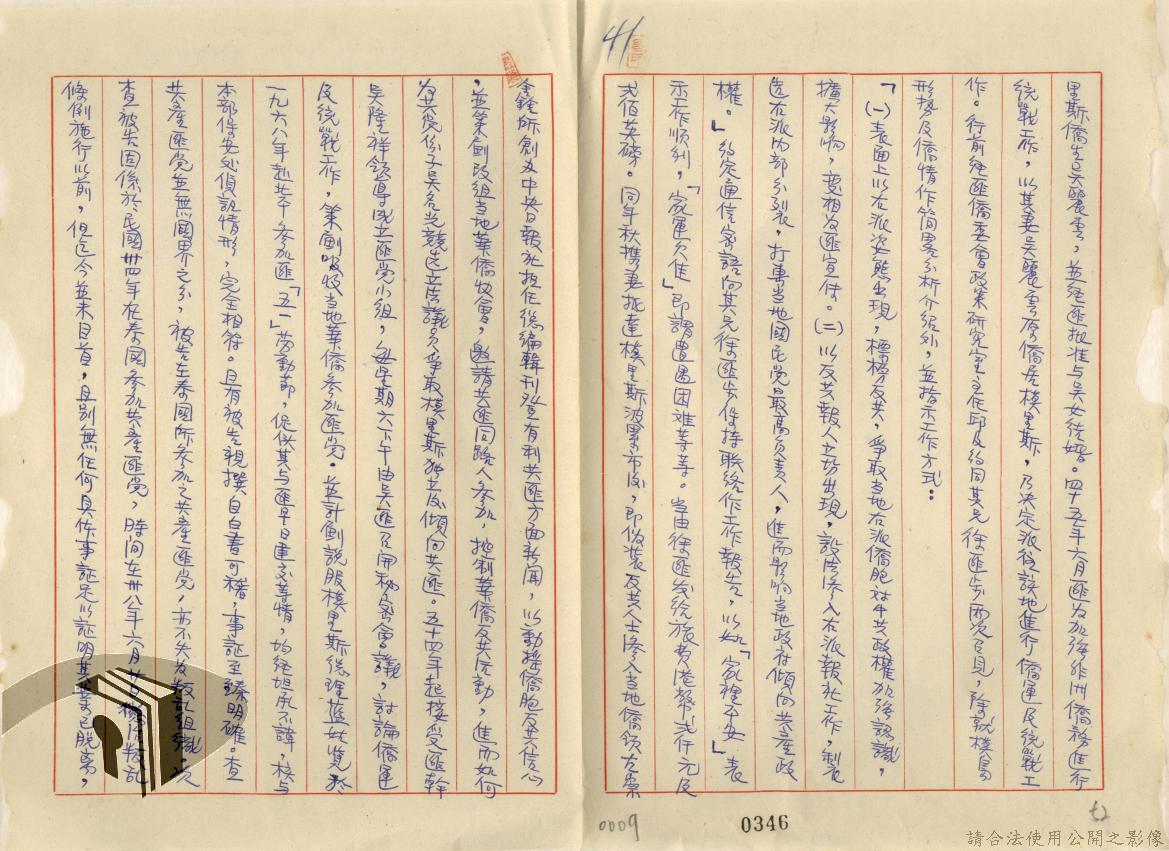 41
里斯僑生吳麗雲,並經匪批准与吳女結婚。四十五年六月匪為加強非洲僑務進行
統戰工作,以其妻吳麗雲原僑居模里斯,乃決定派往該地進行僑運及統戰工
作。行前經匪僑委會政策研究室主任邱及約同其兄徐匪步両次召見,除就模島
形勢及僑情作簡畧分析介紹外,並指示工作方式:
「(一)表面上以右派姿態出現,標榜反共,爭取当地右派僑胞対中共政權加強認識,
擴大影响,変相為匪宣傳。(二)以反共報人立場出現,設法滲入右派報社工作,製造
右派內部分裂,打擊当地國民党最高负责人,進而影响当地政府傾向共產政
權。」約定通信密語向其兄徐匪步保持联絡作工作報告,以如「家裡平安」表
示工作順利,「家運欠佳」即謂遭遇困难等等。当由徐匪发給旅費港幣弍仟元及
弍佰英磅。同年秋携妻抵達模里斯波累市後,即偽裝反共人士滲入当地僑領
金鋒所創办中央日報社担任總編輯刊登有利共匪方面新聞,以動搖僑胞反共信心
,並策劃改組当地華僑牧會,邀請共匪同路人參加,抵制華僑反共活動,進而如何
為共党份子吳名光競选立法議員爭取模里斯独立後傾向共匪。五十四年起接受匪幹
吳隆祥領導成立匪党小組,每星期六下午由吳匪召開秘密會議,討論僑運
及統戰工作,策劃吸收当地華僑參加匪党。並計劃說服模里斯總理藍姑覧於
一九六八年赴北平參加匪「五一」劳動節,促使其与匪早日建交等情,均經坦承不諱,核与
本部保安处偵訊情形,完全相符。且有被告親撰自白書可稽,事証至臻明確。查
共產匪党並無國界之分,被告在泰國所參加之共產匪党,亦不失為叛乱組織。次
查被告固係於民國卅四年在泰國參加共產匪党,時间在卅八年六月廿一日懲治叛乱
條例施行以前,但迄今並未自首,且別無任何具体事証足以証明其業已脫离,
0009
0346
52
請合法使用公開之影像